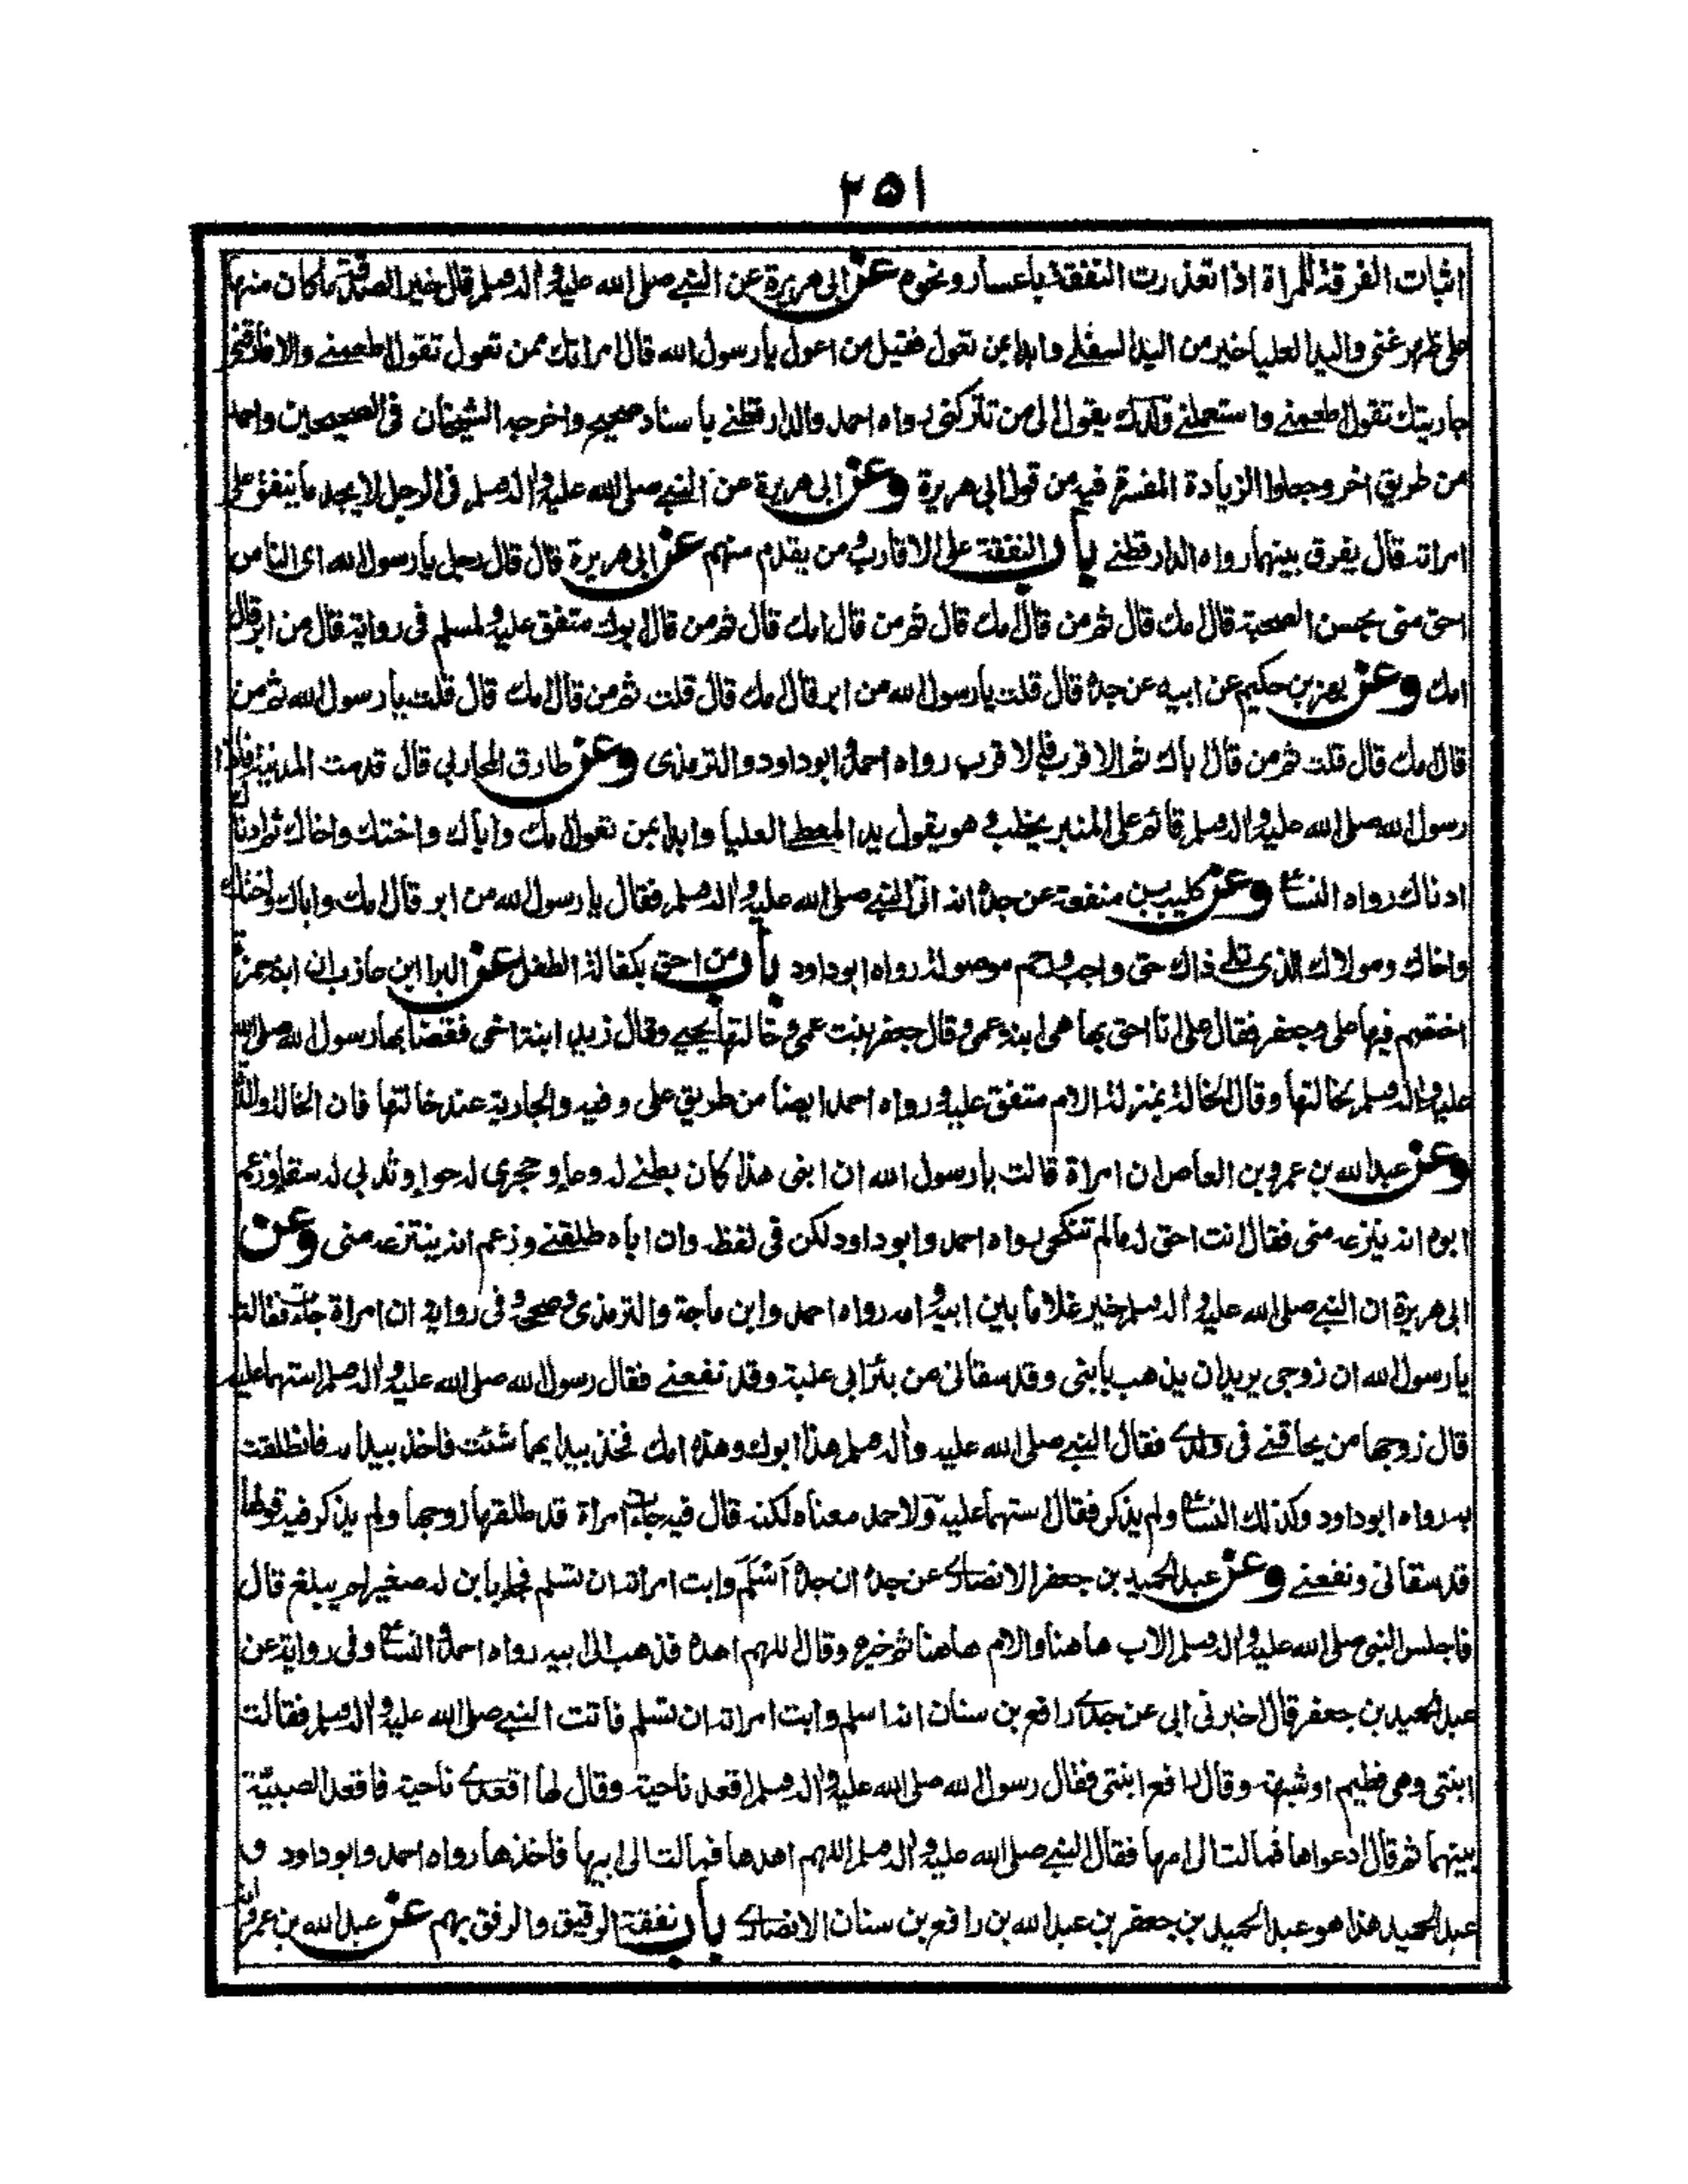 ٢٥١
اثبات الفرقة للمراة اذا تعذرت النفقة باعسار ونحوه عن ابى هريرة عن النبي صلى الله عليه واله وسلم قال خير الصدقة ما كان منها
على ظهر غنى واليد العليا خير من اليد السفلے وابدا بمن تعول فقيل من اعول يا رسول الله قال امراتك ممن تعول تقول اطعمنے والا فارقنے
جاريتك تقول اطعمنے واستعملنے ولدك يقول الى من تتركنى رواه احمد والدارقطنے باسناد صحيح واخرجه الشيخان فى الصحيحين واحمد
من طريق اخر وجعلوا الزيادة المفسرة فيه من قول ابى هريرة وعن ابى هريرة عن النبي صلى الله عليه واله وسلم فى الرجل لا يجد ما ينفق على
امراته قال يفرق بينهما رواه الدارقطنے باب النفقة على الاقارب ومن يقدم منهم عن ابى هريرة قال قال رجل يا رسول الله اى الناس
احق منى بحسن الصحبة قال امك قال ثم من قال امك قال ثم من قال امك قال ثم من قال ابوك متفق عليه ولمسلم فى رواية قال من ابر قال
امك وعن بهز بن حكيم عن ابيه عن جده قال قلت يا رسول الله من ابر قال امك قال قلت ثم من قال امك قال قلت يا رسول الله ثم من
قال امك قال قلت ثم من قال اباك ثم الاقرب فالاقرب رواه احمد وابو داود والترمذى وعن طارق المحاربى قال قدمت المدينة فاذا
رسول الله صلى الله عليه واله وسلم قائم على المنبر يخطب وهو يقول يد المعطى العليا وابدا بمن تعول امك واباك واختك واخاك ثم ادناك
ادناك رواه النسائى وعن كليب بن منفعة عن جده انه اتى النبي صلى الله عليه واله وسلم فقال يا رسول الله من ابر قال امك واباك واختك
واخاك ومولاك الذى تلے ذاك حق واجب ورحم موصولة رواه ابو داود باب من احق بكفالة الطفل عن البرا ابن عازب ان ابنة حمزة
اختصم فيها على وجعفر فقال على انا احق بها هى ابنة عمى وقال جعفر بنت عمى وخالتها تحتى وقال زيد ابنة اخى فقضا بها رسول الله صلى الله
عليه واله وسلم لخالتها وقال الخالة بمنزلة الام متفق عليه ورواه احمد ايضا من طريق على وفيه والجارية عند خالتها فان الخالة والدة
وعن عبد الله بن عمرو بن العاص ان امراة قالت يا رسول الله ان ابنى هذا كان بطنے له وعاء وحجرى له حواء وثديى له سقاء وزعم
ابوه انه ينزعه منى فقال انت احق له ما لم تنكحى رواه احمد وابو داود لكن فى لفظه وان اباه طلقنے وزعم انه ينتزعه منى وعن
ابى هريرة ان النبي صلى الله عليه واله وسلم خير غلاما بين ابيه وامه رواه احمد وابن ماجة والترمذى وصححه وفى رواية ان امراة جاءت فقالت
يا رسول الله ان زوجى يريد ان يذهب بابنى وقد سقانى من بئر ابى عنبة وقد نفعنے فقال رسول الله صلى الله عليه واله وسلم استهما عليه
قال زوجها من يحاقنے فى ولدى فقال النبي صلى الله عليه واله وسلم هذا ابوك وهذه امك فخذ بيد ايهما شئت فاخذ بيد امه فانطلقت
به رواه ابو داود وكذلك النسائى ولم يذكر فقال استهما عليه ولاحمد معناه لكنه قال فيه جاءت امراة قد طلقها زوجها ولم يذكر فيه قولها
قد سقانى ونفعنے وعن عبد الحميد بن جعفر الانصارى عن جده ان جده اسلم وابت امراته ان تسلم فجاء بابن له صغير لم يبلغ قال
فاجلس النبى صلى الله عليه واله وسلم الاب هاهنا والام هاهنا ثم خيره وقال اللهم اهده فذهب الى ابيه رواه احمد والنسائى وفى رواية عن
عبد الحميد بن جعفر قال اخبرنى ابى عن جدى رافع بن سنان انه اسلم وابت امراته ان تسلم فاتت النبي صلى الله عليه واله وسلم فقالت
ابنتى وهى فطيم او شبهه وقال رافع ابنتى فقال رسول الله صلى الله عليه واله وسلم اقعد ناحية وقال لها اقعدى ناحية فاقعد الصبيّة
بينهما ثم قال ادعواها فمالت الى امها فقال النبي صلى الله عليه واله وسلم اللهم اهدها فمالت الى ابيها فاخذها رواه احمد وابو داود و
عبد الحميد هذا هو عبد الحميد بن جعفر بن عبد الله بن رافع بن سنان الانصارى باب نفقة الرقيق والرفق بهم عن عبد الله بن عمرو